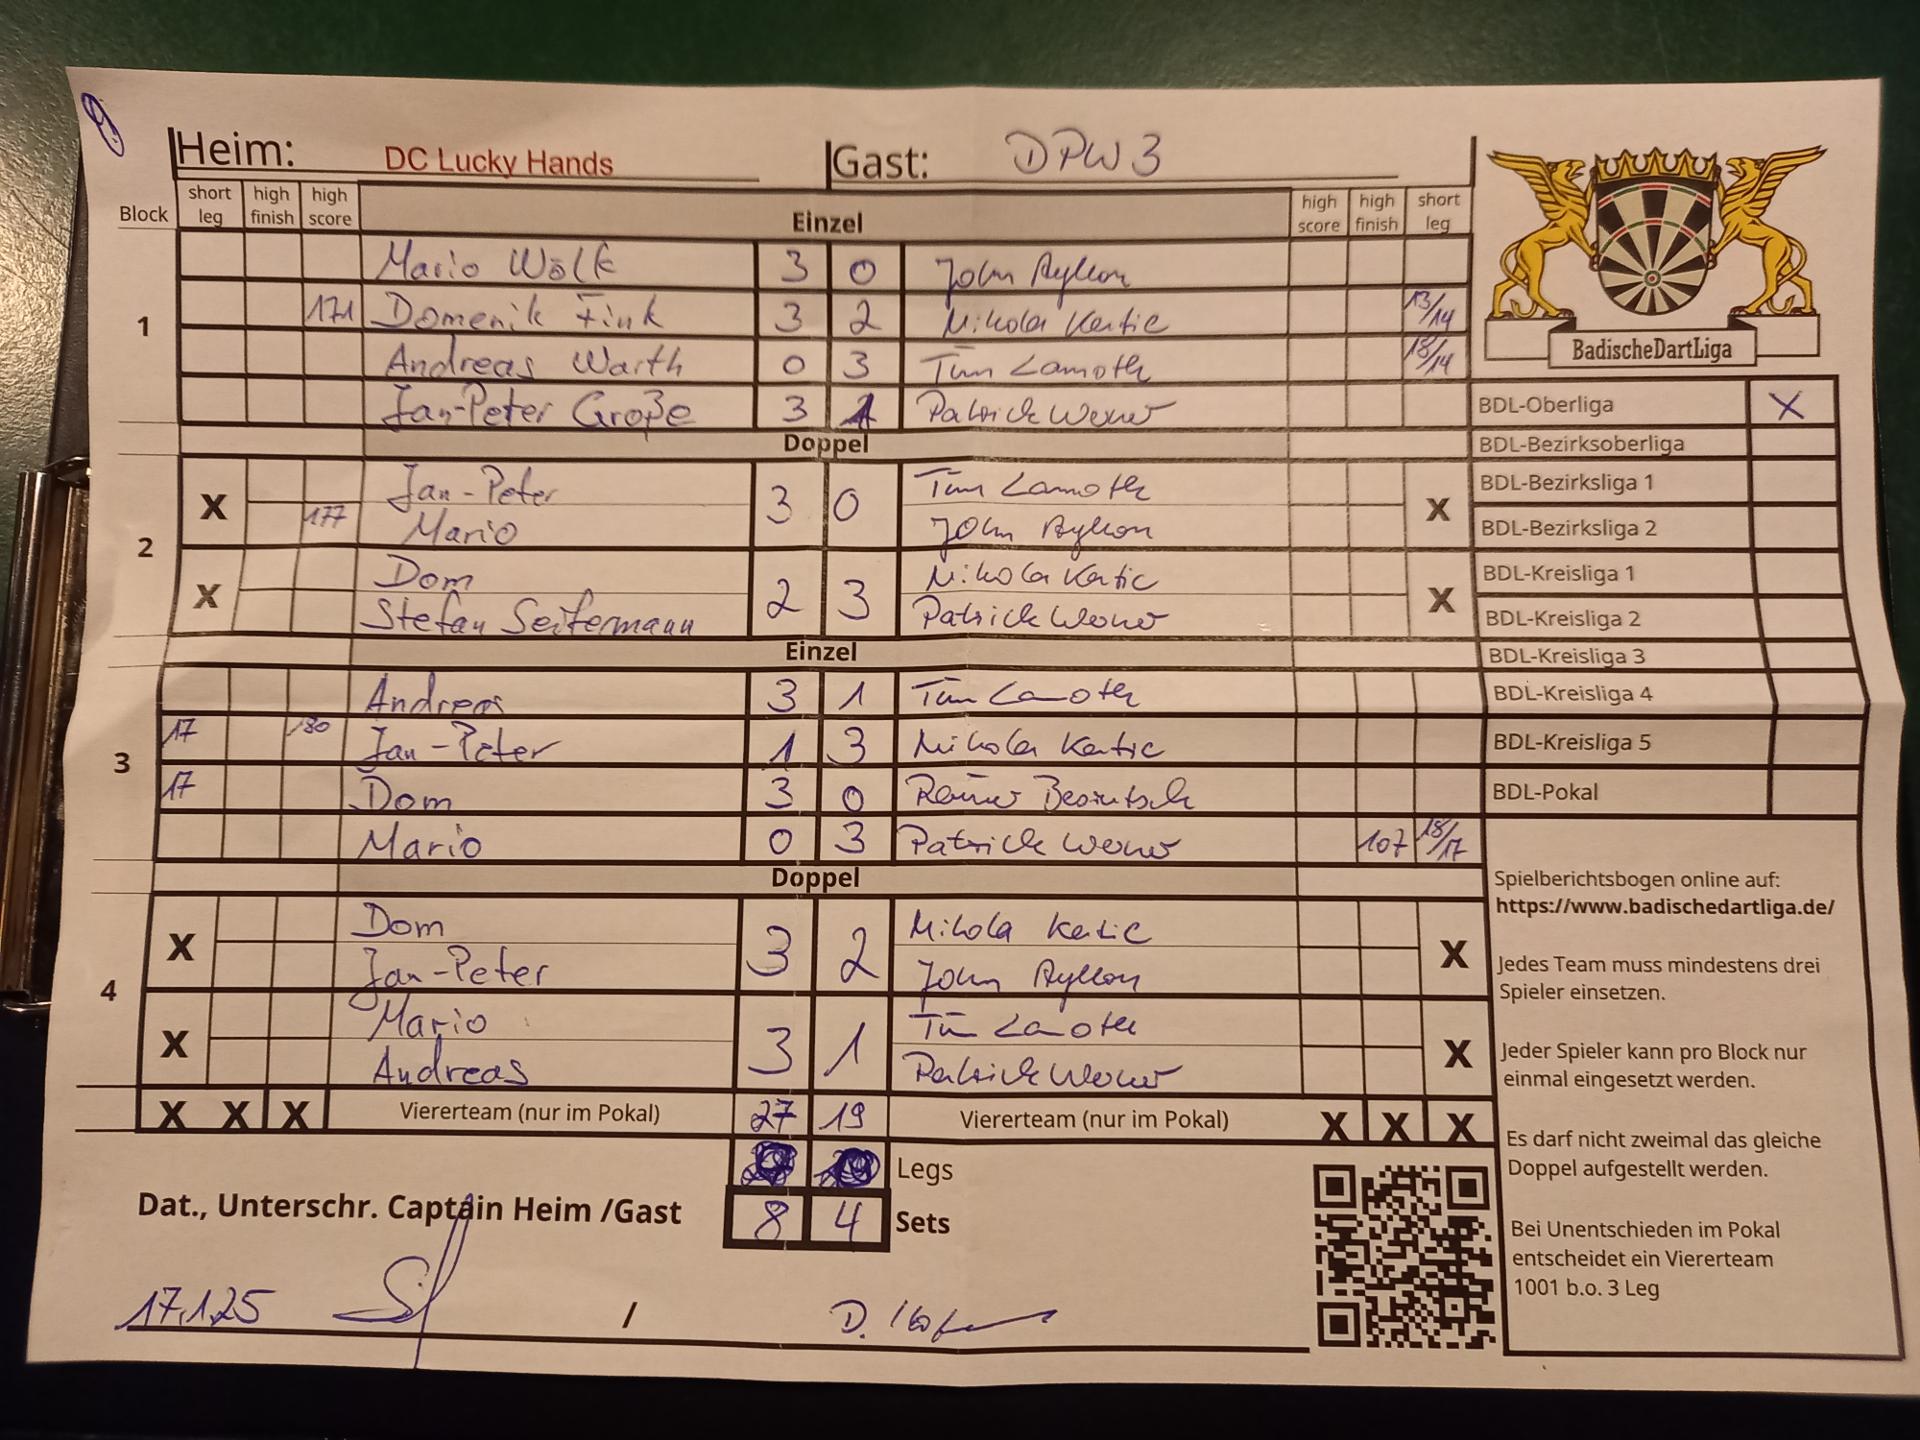 Heim: DC Lucky Hands Gast: DPW 3
Block short leg high finish high score Einzel high score high finish short leg
Mario Wölk 3 0 John
1 171 Domenik Fink 3 2 Nikola Kertic 13/14
Andreas Warth 0 3 Tim Lamoth 18/14
Jan-Peter Große 3 1 Patrick Werner
Doppel
Jan-Peter Tim Lamoth
X 3 0 X
177 Mario John
2
Dom Nikola Kertic
X 2 3 X
Stefan Seifermann Patrick Werner
Einzel
Andreas 3 1 Tim Lamoth
17 180 Jan-Peter 1 3 Nikola Kertic
3
17 Dom 3 0
Mario 0 3 Patrick Werner 107 18/17
Doppel
Dom Nikola Kertic
X 3 2 X
Jan-Peter John
4
Mario Tim Lamoth
X 3 1 X
Andreas Patrick Werner
X X X Viererteam (nur im Pokal) 27 19 Viererteam (nur im Pokal) X X X
Legs
Dat., Unterschr. Captain Heim /Gast 8 4 Sets
17.1.25 / D.
BadischeDartLiga
BDL-Oberliga X
BDL-Bezirksoberliga
BDL-Bezirksliga 1
BDL-Bezirksliga 2
BDL-Kreisliga 1
BDL-Kreisliga 2
BDL-Kreisliga 3
BDL-Kreisliga 4
BDL-Kreisliga 5
BDL-Pokal
Spielberichtsbogen online auf:
https://www.badischedartliga.de/
Jedes Team muss mindestens drei
Spieler einsetzen.
Jeder Spieler kann pro Block nur
einmal eingesetzt werden.
Es darf nicht zweimal das gleiche
Doppel aufgestellt werden.
Bei Unentschieden im Pokal
entscheidet ein Viererteam
1001 b.o. 3 Leg